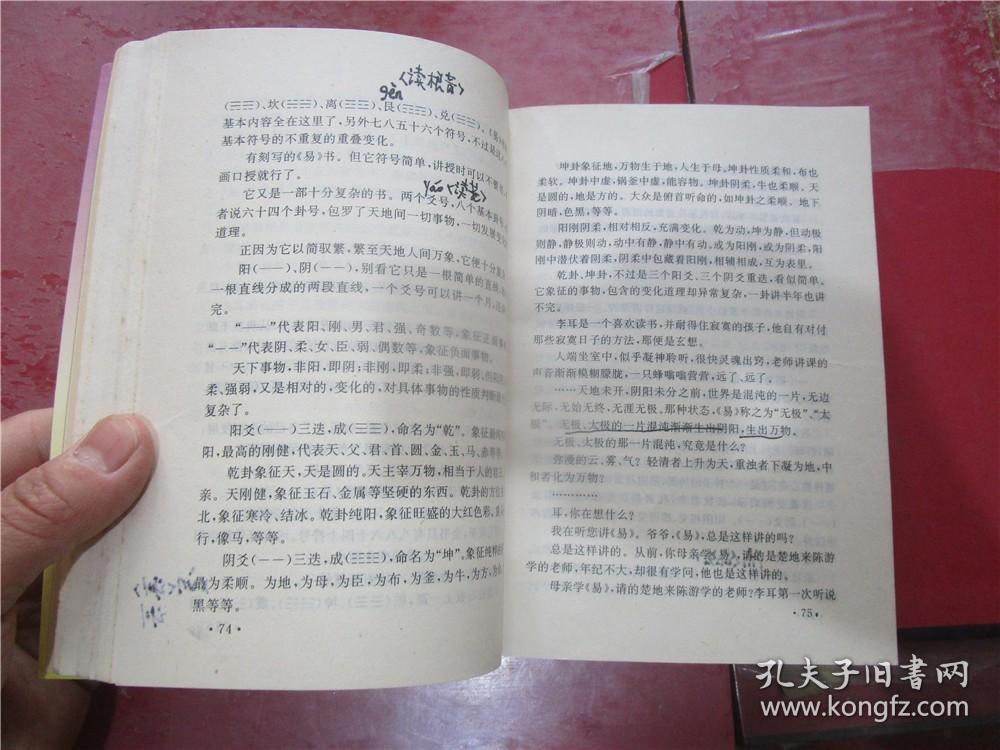 〈读根音〉
gěn
(☰☰)、坎(☰☰)、离(☰☰)、艮(☰☰)、兑(☰☰)。《易》
基本内容全在这里了，另外七八五十六个符号，不过是
基本符号的不重复的重叠变化。
有刻写的《易》书。但它符号简单，讲授时可以不要书，
画口授就行了。
yáo〈读
它又是一部十分复杂的书。两个爻号，八个基本卦号，
者说六十四个卦号，包罗了天地间一切事物，一切发展变
道理。
正因为它以简驭繁，繁至天地人间万象，它便十分复
阳(——)、阴(－－)，别看它只是一根简单的直线，
一根直线分成的两段直线，一个爻号可以讲一个月，还
完。
“——”代表阳、刚、男、君、强、奇数等，象征正面事
“－－”代表阴、柔、女、臣、弱、偶数等，象征负面事物。
天下事物，非阳，即阴；非刚，即柔；非强，即弱，
柔、强弱，又是相对的，变化的，对具体事物的性质判断
复杂了。
阳爻(——)三迭，成(☰)，命名为“乾”。象征最
阳，最高的刚健，代表天、父、君、首、圆、金、玉、马、赤等
乾卦象征天，天是圆的。天主宰万物，相当于人的
亲。天刚健，象征玉石、金属等坚硬的东西。乾卦的方位
北，象征寒冷、结冰。乾卦纯阳，象征旺盛的大红色彩，
行，像马，等等。
阴爻(－－)三迭，成(☷)，命名为“坤”。象征纯粹
最为柔顺。为地，为母，为臣，为布，为釜，为牛，为方，为
黑等等。
·74·
坤卦象征地，万物生于地，人生于母。坤卦性质柔和，布也
柔软。坤卦中虚，锅釜中虚，能容物。坤卦阴柔，牛也柔顺。天
是圆的，地是方的。大众是俯首听命的，如坤卦之柔顺。地下
阴暗，色黑，等等。
阳刚阴柔，相对相反，充满变化。乾为动，坤为静，但动极
则静，静极则动，动中有静，静中有动。或为阳刚，或为阴柔，阳
刚中潜伏着阴柔，阴柔中包藏着阳刚，相辅相成，互为表里。
乾卦、坤卦，不过是三个阳爻、三个阴爻重迭，看似简单。
它象征的事物，包含的变化道理却异常复杂，一卦讲半年也讲
不完。
李耳是一个喜欢读书，并耐得住寂寞的孩子，他自有对付
那些寂寞日子的方法，那便是玄想。
人端坐室中，似乎凝神聆听，很快灵魂出窍，老师讲课的
声音渐渐模糊朦胧，一只蜂嗡嗡营营，远了、远了。
……天地未开，阴阳未分之前，世界是混沌的一片，无边
无际，无始无终，无涯无极。那种状态，《易》称之为“无极”、“太
极”。无极、太极的一片混沌渐渐生出阴阳，生出万物。
无极、太极的那一片混沌，究竟是什么？
弥漫的云、雾、气？轻清者上升为天，重浊者下凝为地，中
和者化为万物？
…………
耳，你在想什么？
我在听您讲《易》。爷爷，《易》，总是这样讲的吗？
总是这样讲的。从前，你母亲学《易》，请的是楚地来陈游
学的老师，年纪不大，却很有学问，他也是这样讲的。
母亲学《易》，请的楚地来陈游学的老师？李耳第一次听说
·75·
孔夫子旧书网
www.kongfz.com